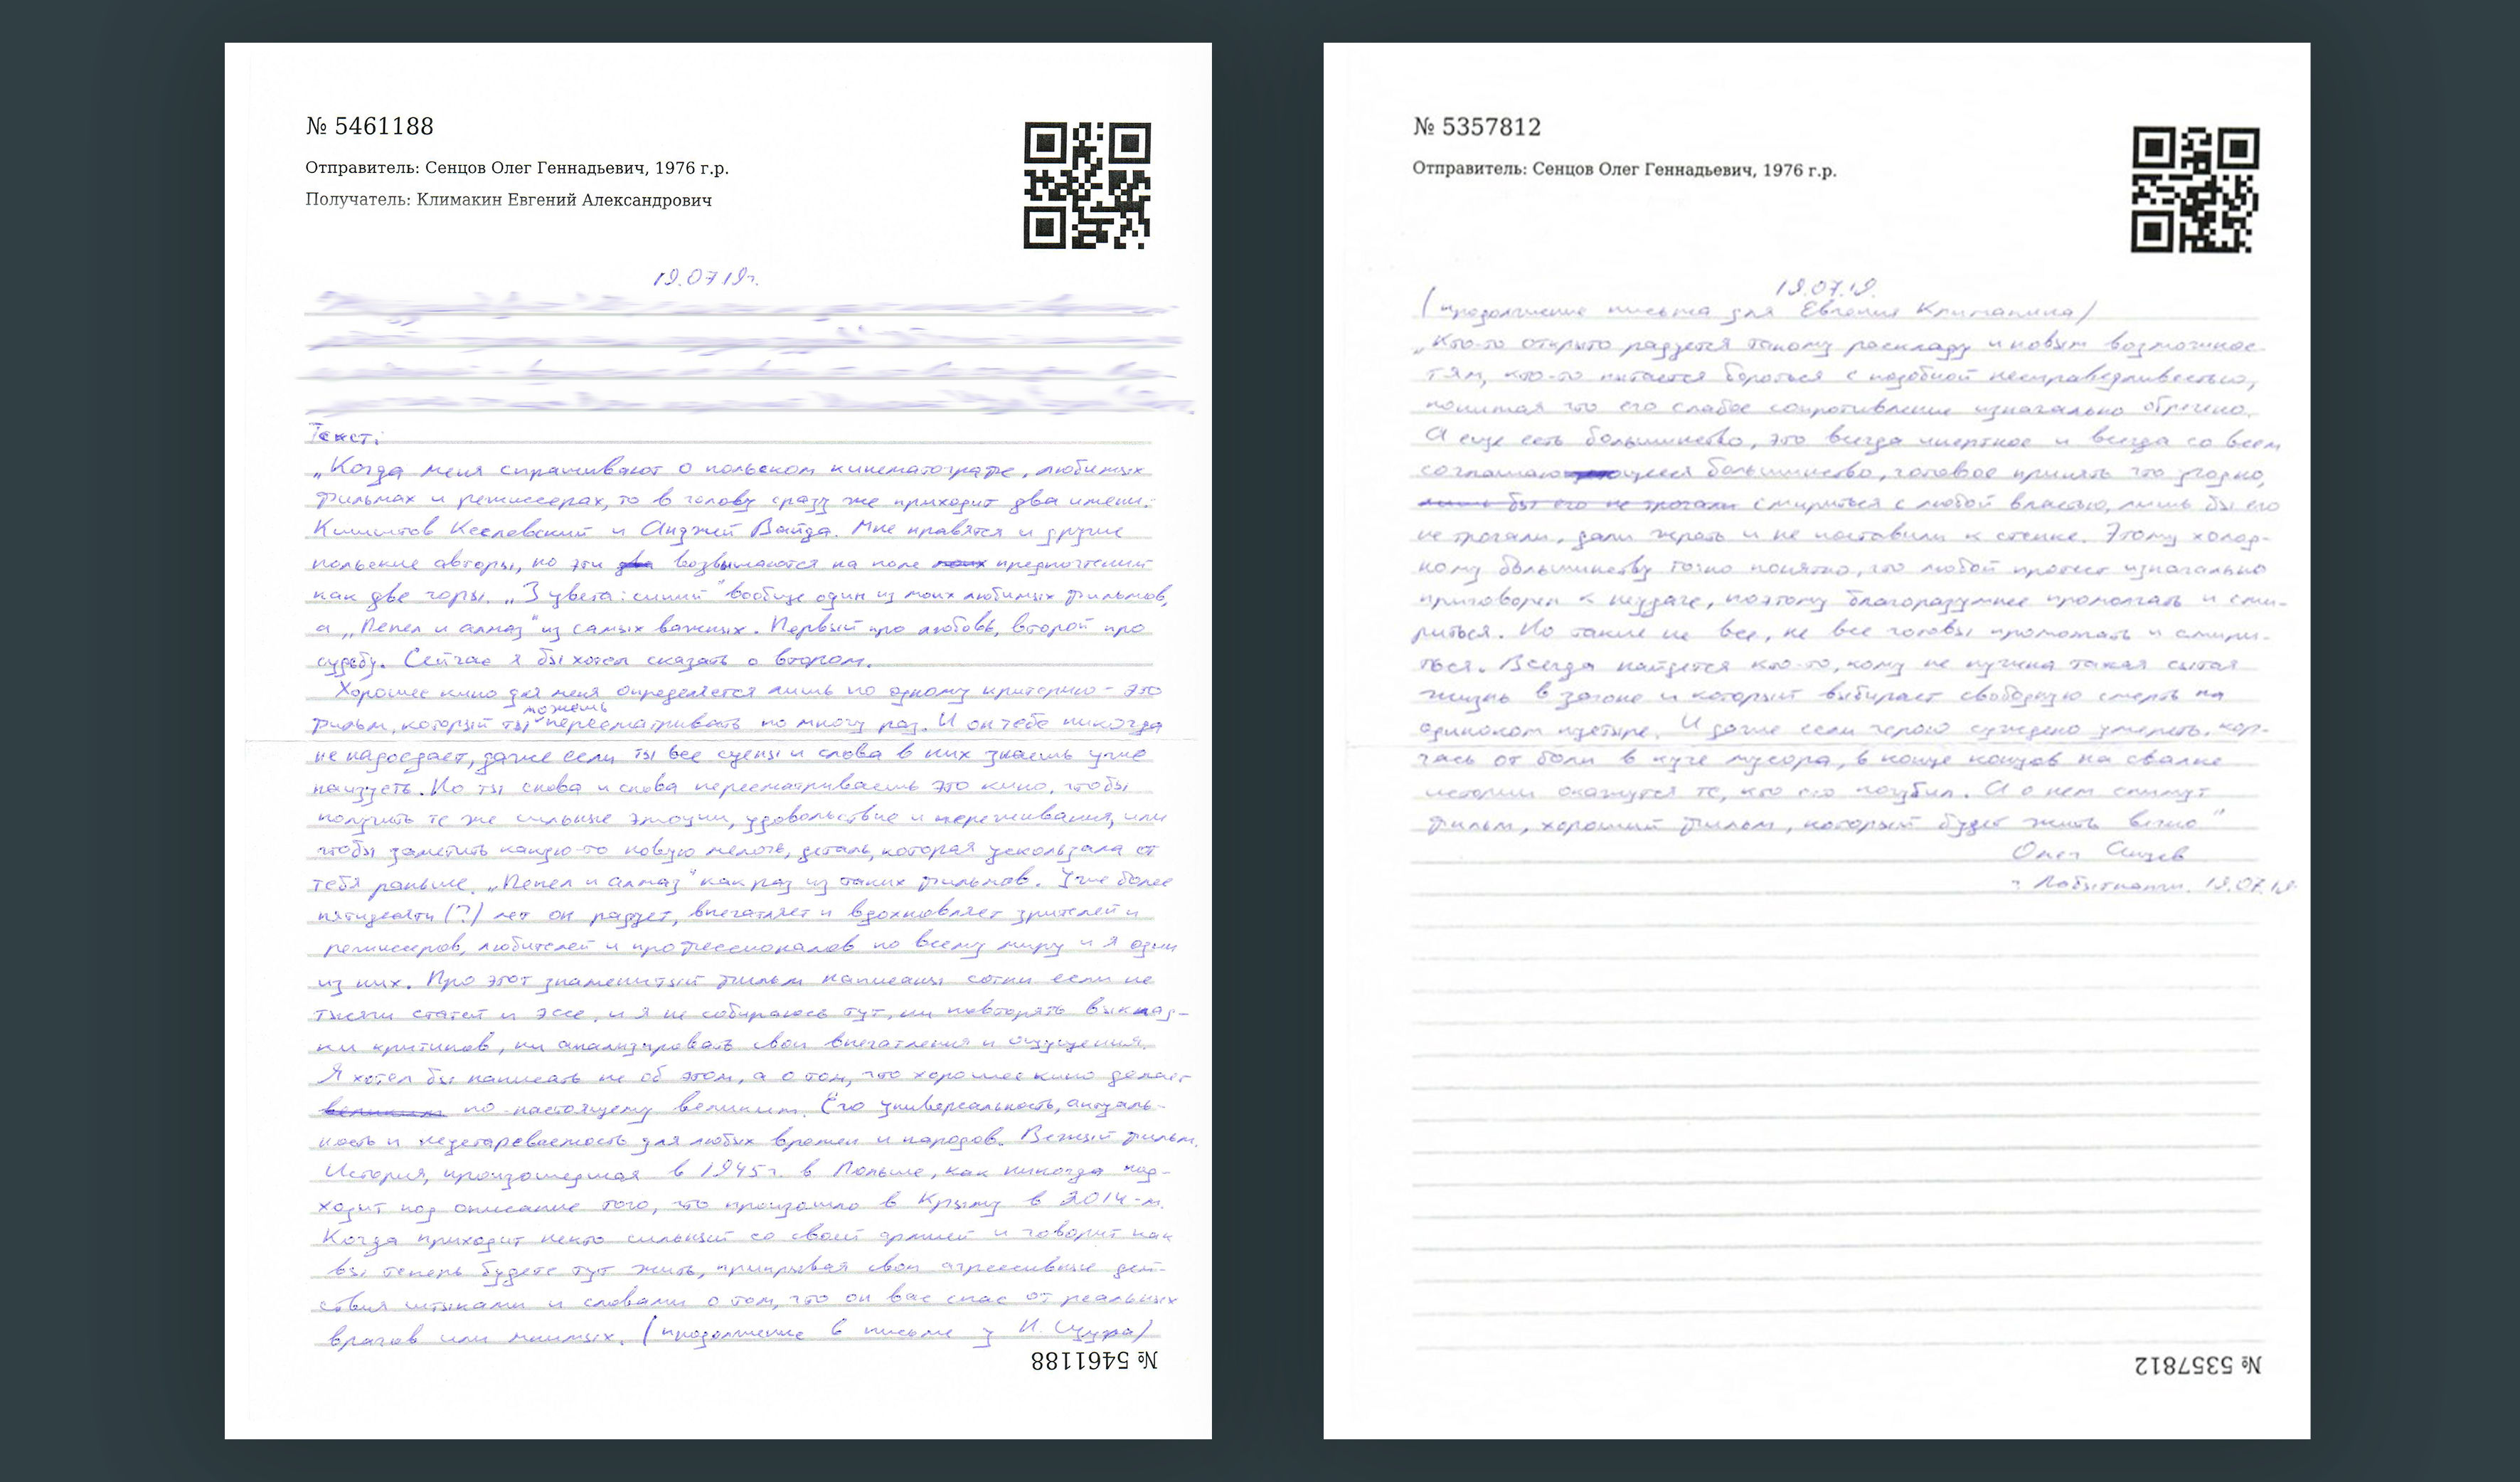 № 5461188
Отправитель: Сенцов Олег Геннадьевич, 1976 г.р.
Получатель: Климакин Евгений Александрович
19.07.19г.
Текст:
„Когда меня спрашивают о польском кинематографе, любимых
фильмах и режиссерах, то в голову сразу же приходит два имени:
Кишитов Кеслевский и Анджей Вайда. Мне нравятся и другие
польские авторы, но эти два возвышаются на поле моих предпочтений
как две горы. „3 цвета: синий" вообще один из моих любимых фильмов,
а „Пепел и алмаз" из самых важных. Первый про любовь, второй про
судьбу. Сейчас я бы хотел сказать о втором.
Хорошее кино для меня определяется лишь по одному критерию - это
фильм, который ты можешь пересматривать по многу раз. И он тебе никогда
не надоедает, даже если ты все сцены и слова в них знаешь уже
наизусть. Но ты снова и снова пересматриваешь это кино, чтобы
получить те же сильные эмоции, удовольствие и переживания, или
чтобы заметить какую-то новую мелочь, деталь, которая ускользала от
тебя раньше. „Пепел и алмаз" как раз из таких фильмов. Уже более
пятидесяти (?) лет он радует, впечатляет и вдохновляет зрителей и
режиссеров, любителей и профессионалов по всему миру и я один
из них. Про этот знаменитый фильм написаны сотни если не
тысячи статей и эссе, и я не собираюсь тут, ни повторять выклад-
ки критиков, ни анализировать свои впечатления и ощущения.
Я хотел бы написать не об этом, а о том, что хорошее кино делает
великим по-настоящему великим. Его универсальность, актуаль-
ность и неустареваемость для любых времен и народов. Вечный фильм.
История, произошедшая в 1945г. в Польше, как никогда под-
ходит под описание того, что произошло в Крыму в 2014-м.
Когда приходит некто сильный со своей армией и говорит как
вы теперь будете тут жить, прикрывая свои агрессивные дей-
ствия штыками и словами о том, что он вас спас от реальных
врагов или мнимых. (продолжение в письме у И. Щура)
№ 5461188
№ 5357812
Отправитель: Сенцов Олег Геннадьевич, 1976 г.р.
19.07.19.
(продолжение письма для Евгения Климакина)
„Кто-то открыто радуется такому раскладу и новым возможнос-
тям, кто-то пытается бороться с подобной несправедливостью,
понимая что его слабое сопротивление изначально обречено.
А еще есть большинство, это всегда инертное и всегда со всем
соглашающееся большинство, готовое принять что угодно,
лишь бы его не трогали смириться с любой властью, лишь бы его
не трогали, дали жрать и не поставили к стенке. Этому холод-
ному большинству точно понятно, что любой протест изначально
приговорен к неудаче, поэтому благоразумнее промолчать и сми-
риться. Но такие не все, не все готовы промолчать и смири-
ться. Всегда найдется кто-то, кому не нужна такая сытая
жизнь в загоне и который выбирает свободную смерть на
одиноком пустыре. И даже если герою суждено умереть, кор-
чась от боли в куче мусора, в конце концов на свалке
истории окажутся те, кто его погубил. А о нем снимут
фильм, хороший фильм, который будет жить вечно"
Олег Сенцов
г. Лабытнанги. 19.07.19
№ 5357812